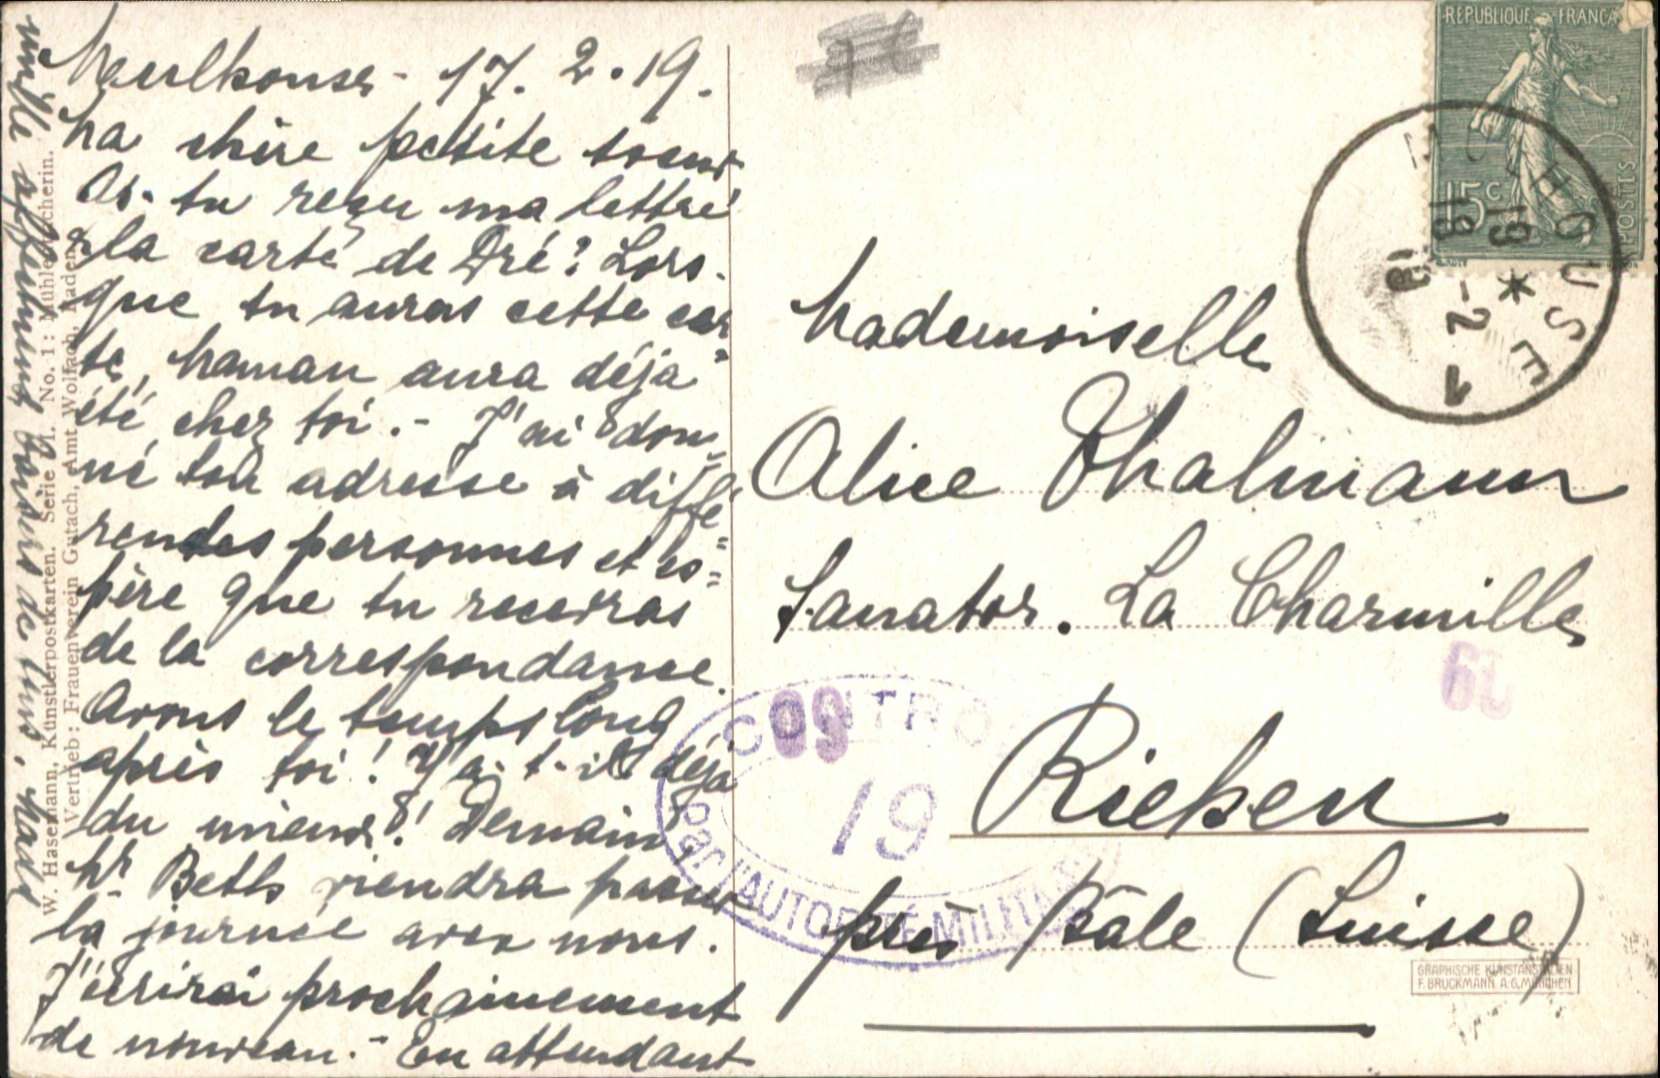 Mulhouse - 17. 2. 19.
Ma chère petite soeur
As-tu reçu ma lettre
& la carte de Dré? Lors-
que tu auras cette car-
te, Maman aura déja
été chez toi. - J'ai don-
né ton adresse à diffé-
rendes personnes et es-
père que tu recevras
de la correspondance.
Avons le temps long
après toi! Y a-t-il déja
du mieux?! Demain,
Mr Beths viendra passer
la journée avec nous.
J'écrirai prochainement
de nouveau. - En attendant
mille affectueux baisers de tous.
W. Hasemann, Künstlerpostkarten. Serie M. No. 1: Mühlebacherin.
Vertrieb: Frauenverein Gutach, Amt Wolfach, Baden.
REPUBLIQUE FRANÇAISE
15c
POSTES
MULHOUSE
19 -2
19
1
Mademoiselle
Alice Thalmann
Sanator. La Charmille
Riehen
près Bâle (Suisse)
CONTROLE
19
Par l'AUTORITÉ MILITAIRE
GRAPHISCHE KUNSTANSTALTEN
F. BRUCKMANN A.G. MÜNCHEN